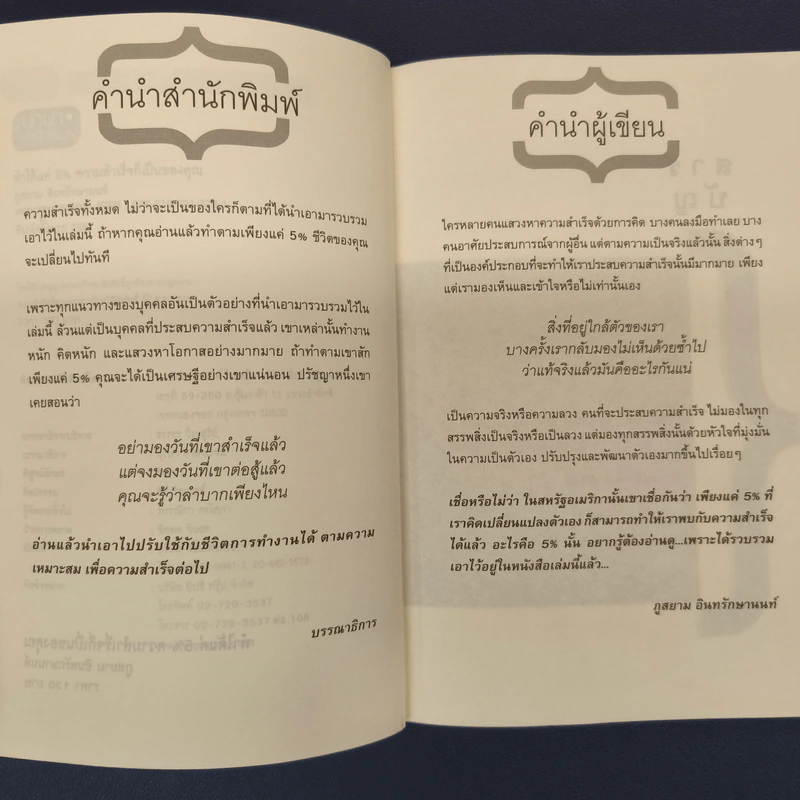 คำนำสำนักพิมพ์
ความสำเร็จทั้งหมด ไม่ว่าจะเป็นของใครก็ตามที่ได้นำเอามารวบรวม
เอาไว้ในเล่มนี้ ถ้าหากคุณอ่านแล้วทำตามเพียงแค่ 5% ชีวิตของคุณ
จะเปลี่ยนไปทันที
เพราะทุกแนวทางของบุคคลอันเป็นตัวอย่างที่นำเอามารวบรวมไว้ใน
เล่มนี้ ล้วนแต่เป็นบุคคลที่ประสบความสำเร็จแล้ว เขาเหล่านั้นทำงาน
หนัก คิดหนัก และแสวงหาโอกาสอย่างมากมาย ถ้าทำตามเขาสัก
เพียงแค่ 5% คุณจะได้เป็นเศรษฐีอย่างเขาแน่นอน ปรัชญาหนึ่งเขา
เคยสอนว่า
อย่ามองวันที่เขาสำเร็จแล้ว
แต่จงมองวันที่เขาต่อสู้แล้ว
คุณจะรู้ว่าลำบากเพียงไหน
อ่านแล้วนำเอาไปปรับใช้กับชีวิตการทำงานได้ ตามความ
เหมาะสม เพื่อความสำเร็จต่อไป
บรรณาธิการ
คำนำผู้เขียน
ใครหลายคนแสวงหาความสำเร็จด้วยการคิด บางคนลงมือทำเลย บาง
คนอาศัยประสบการณ์จากผู้อื่น แต่ตามความเป็นจริงแล้วนั้น สิ่งต่างๆ
ที่เป็นองค์ประกอบที่จะทำให้เราประสบความสำเร็จนั้นมีมากมาย เพียง
แต่เรามองเห็นและเข้าใจหรือไม่เท่านั้นเอง
สิ่งที่อยู่ใกล้ตัวของเรา
บางครั้งเรากลับมองไม่เห็นด้วยซ้ำไป
ว่าแท้จริงแล้วมันคืออะไรกันแน่
เป็นความจริงหรือความลวง คนที่จะประสบความสำเร็จ ไม่มองในทุก
สรรพสิ่งเป็นจริงหรือเป็นลวง แต่มองทุกสรรพสิ่งนั้นด้วยหัวใจที่มุ่งมั่น
ในความเป็นตัวเอง ปรับปรุงและพัฒนาตัวเองมากขึ้นไปเรื่อยๆ
เชื่อหรือไม่ว่า ในสหรัฐอเมริกานั้นเขาเชื่อกันว่า เพียงแค่ 5% ที่
เราคิดเปลี่ยนแปลงตัวเอง ก็สามารถทำให้เราพบกับความสำเร็จ
ได้แล้ว อะไรคือ 5% นั้น อยากรู้ต้องอ่านดู...เพราะได้รวบรวม
เอาไว้อยู่ในหนังสือเล่มนี้แล้ว...
ภูสยาม อินทรักษานนท์